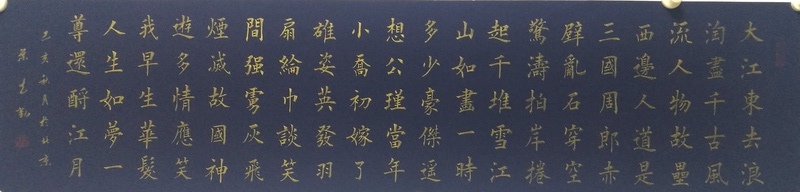 大江東去浪
淘盡千古風
流人物故壘
西邊人道是
三國周郎赤
壁亂石穿空
驚濤拍岸捲
起千堆雪江
山如畫一時
多少豪傑遥
想公瑾當年
小喬初嫁了
雄姿英發羽
扇綸巾談笑
間强虜灰飛
煙滅故國神
遊多情應笑
我早生華髮
人生如夢一
尊還酹江月
己亥秋月於北京